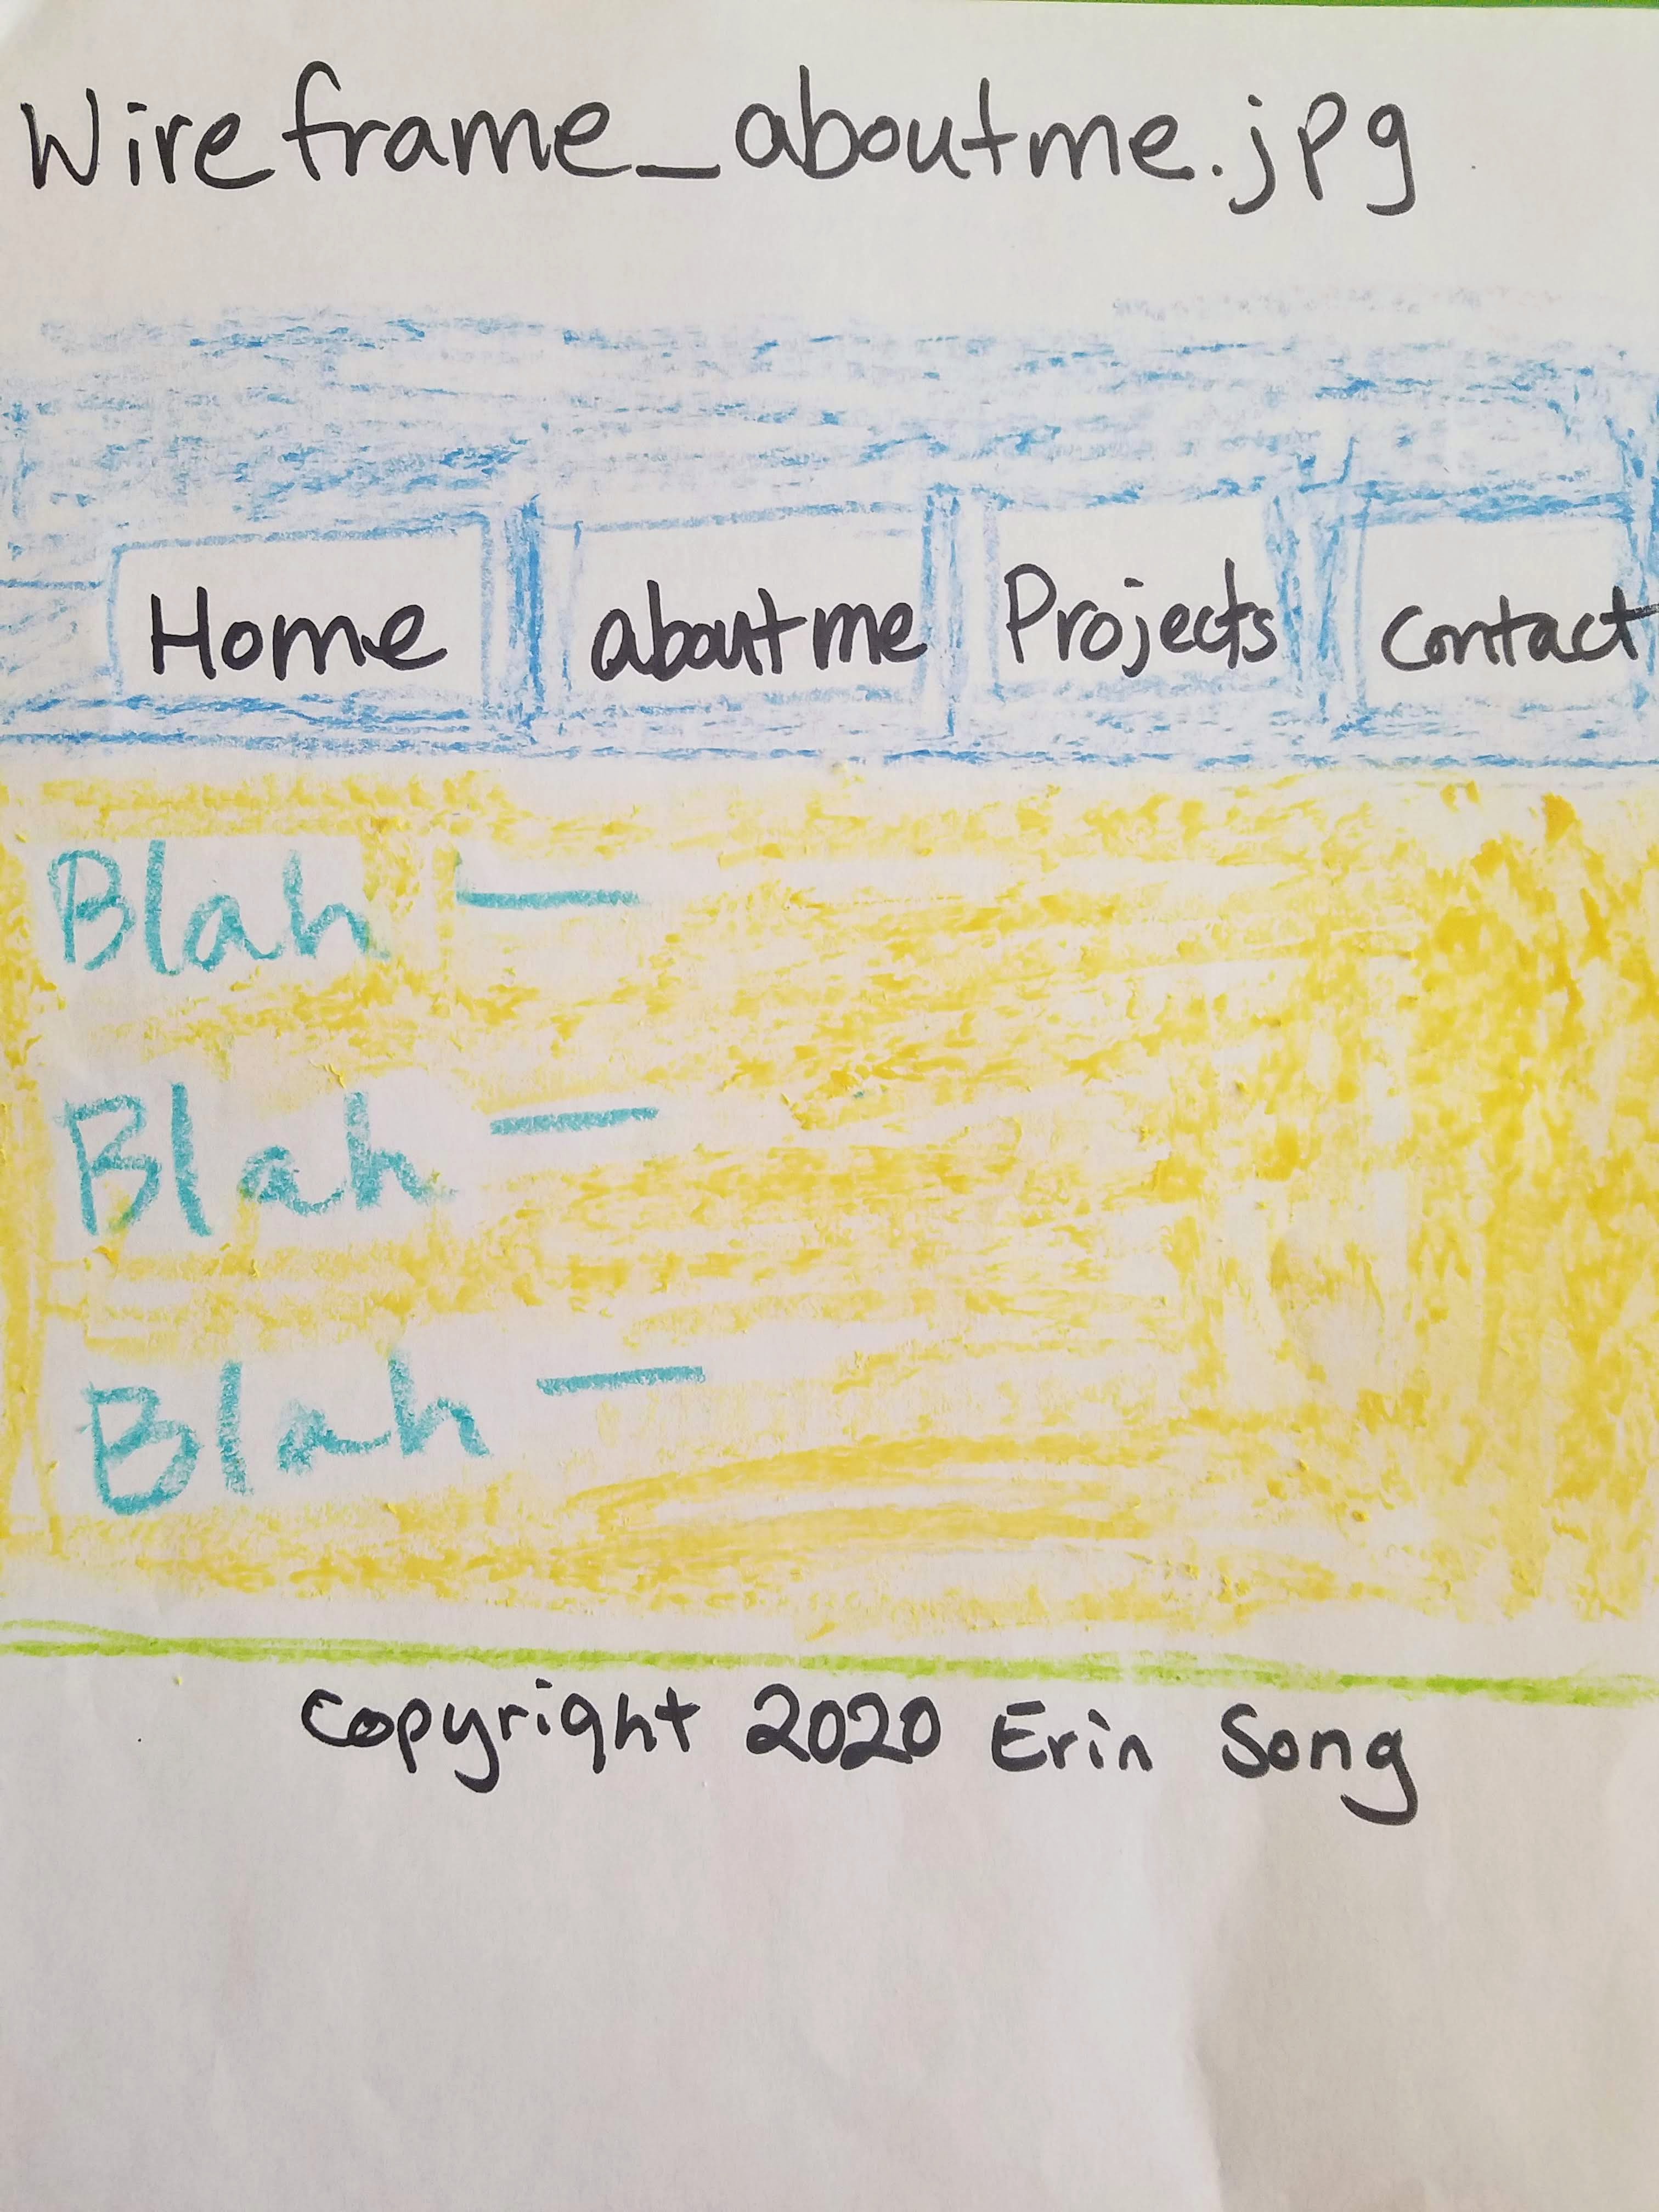 Wireframe_aboutme.jpg
Home aboutme Projects Contact
Blah —
Blah —
Blah —
Copyright 2020 Erin Song